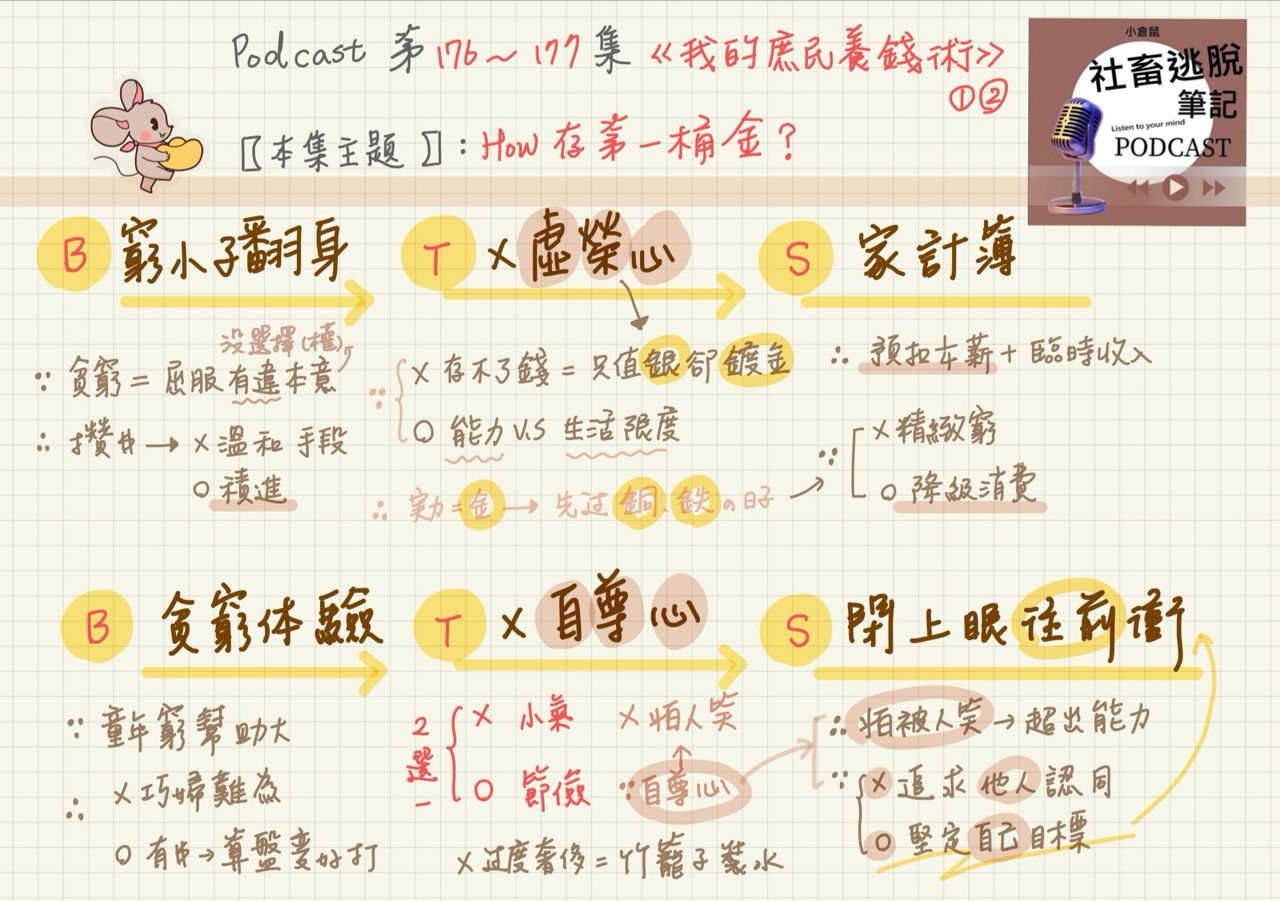 Podcast 第 176～177 集 《我的庶民養錢術》
①②
〖本集主題〗：How 存第一桶金？
小倉鼠
社畜逃脫
筆記
Listen to your mind
PODCAST
B 窮小子翻身
沒選擇(權)
∵ 貧窮 = 屈服有違本意
∴ 攢 → × 溫和手段
○ 積進
T × 虛榮心
∵ × 存不了錢 = 只值銀卻鍍金
○ 能力 V.S 生活限度
∴ 実力 = 金 → 先过銅、鉄の日子
S 家計簿
∴ 預扣本薪 + 臨時收入
∵ × 精緻窮
○ 降級消費
B 貧窮体驗
∵ 童年窮幫助大
∴ × 巧婦難為
○ 有 → 算盤变好打
T × 自尊心
2選一 × 小氣 × 怕人笑
○ 節儉 ∵ 自尊心
× 过度奢侈 = 竹籠子裝水
S 閉上眼往前衝
∴ 怕被人笑 → 超出能力
∵ × 追求他人認同
○ 堅定自己目標